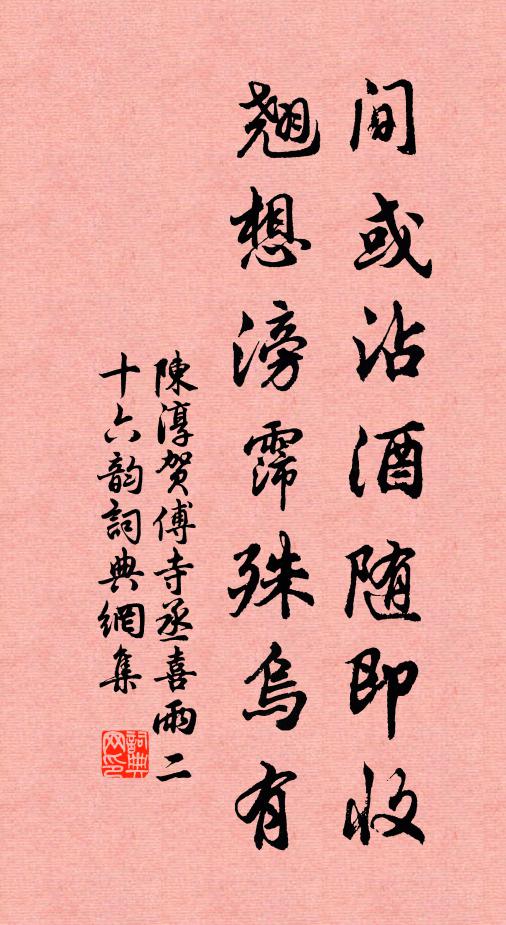 间或沾酒随即收
翘想滂霈殊乌有
陳淳贺傅寺丞喜雨二
十六韵詞典網集
詞典网印